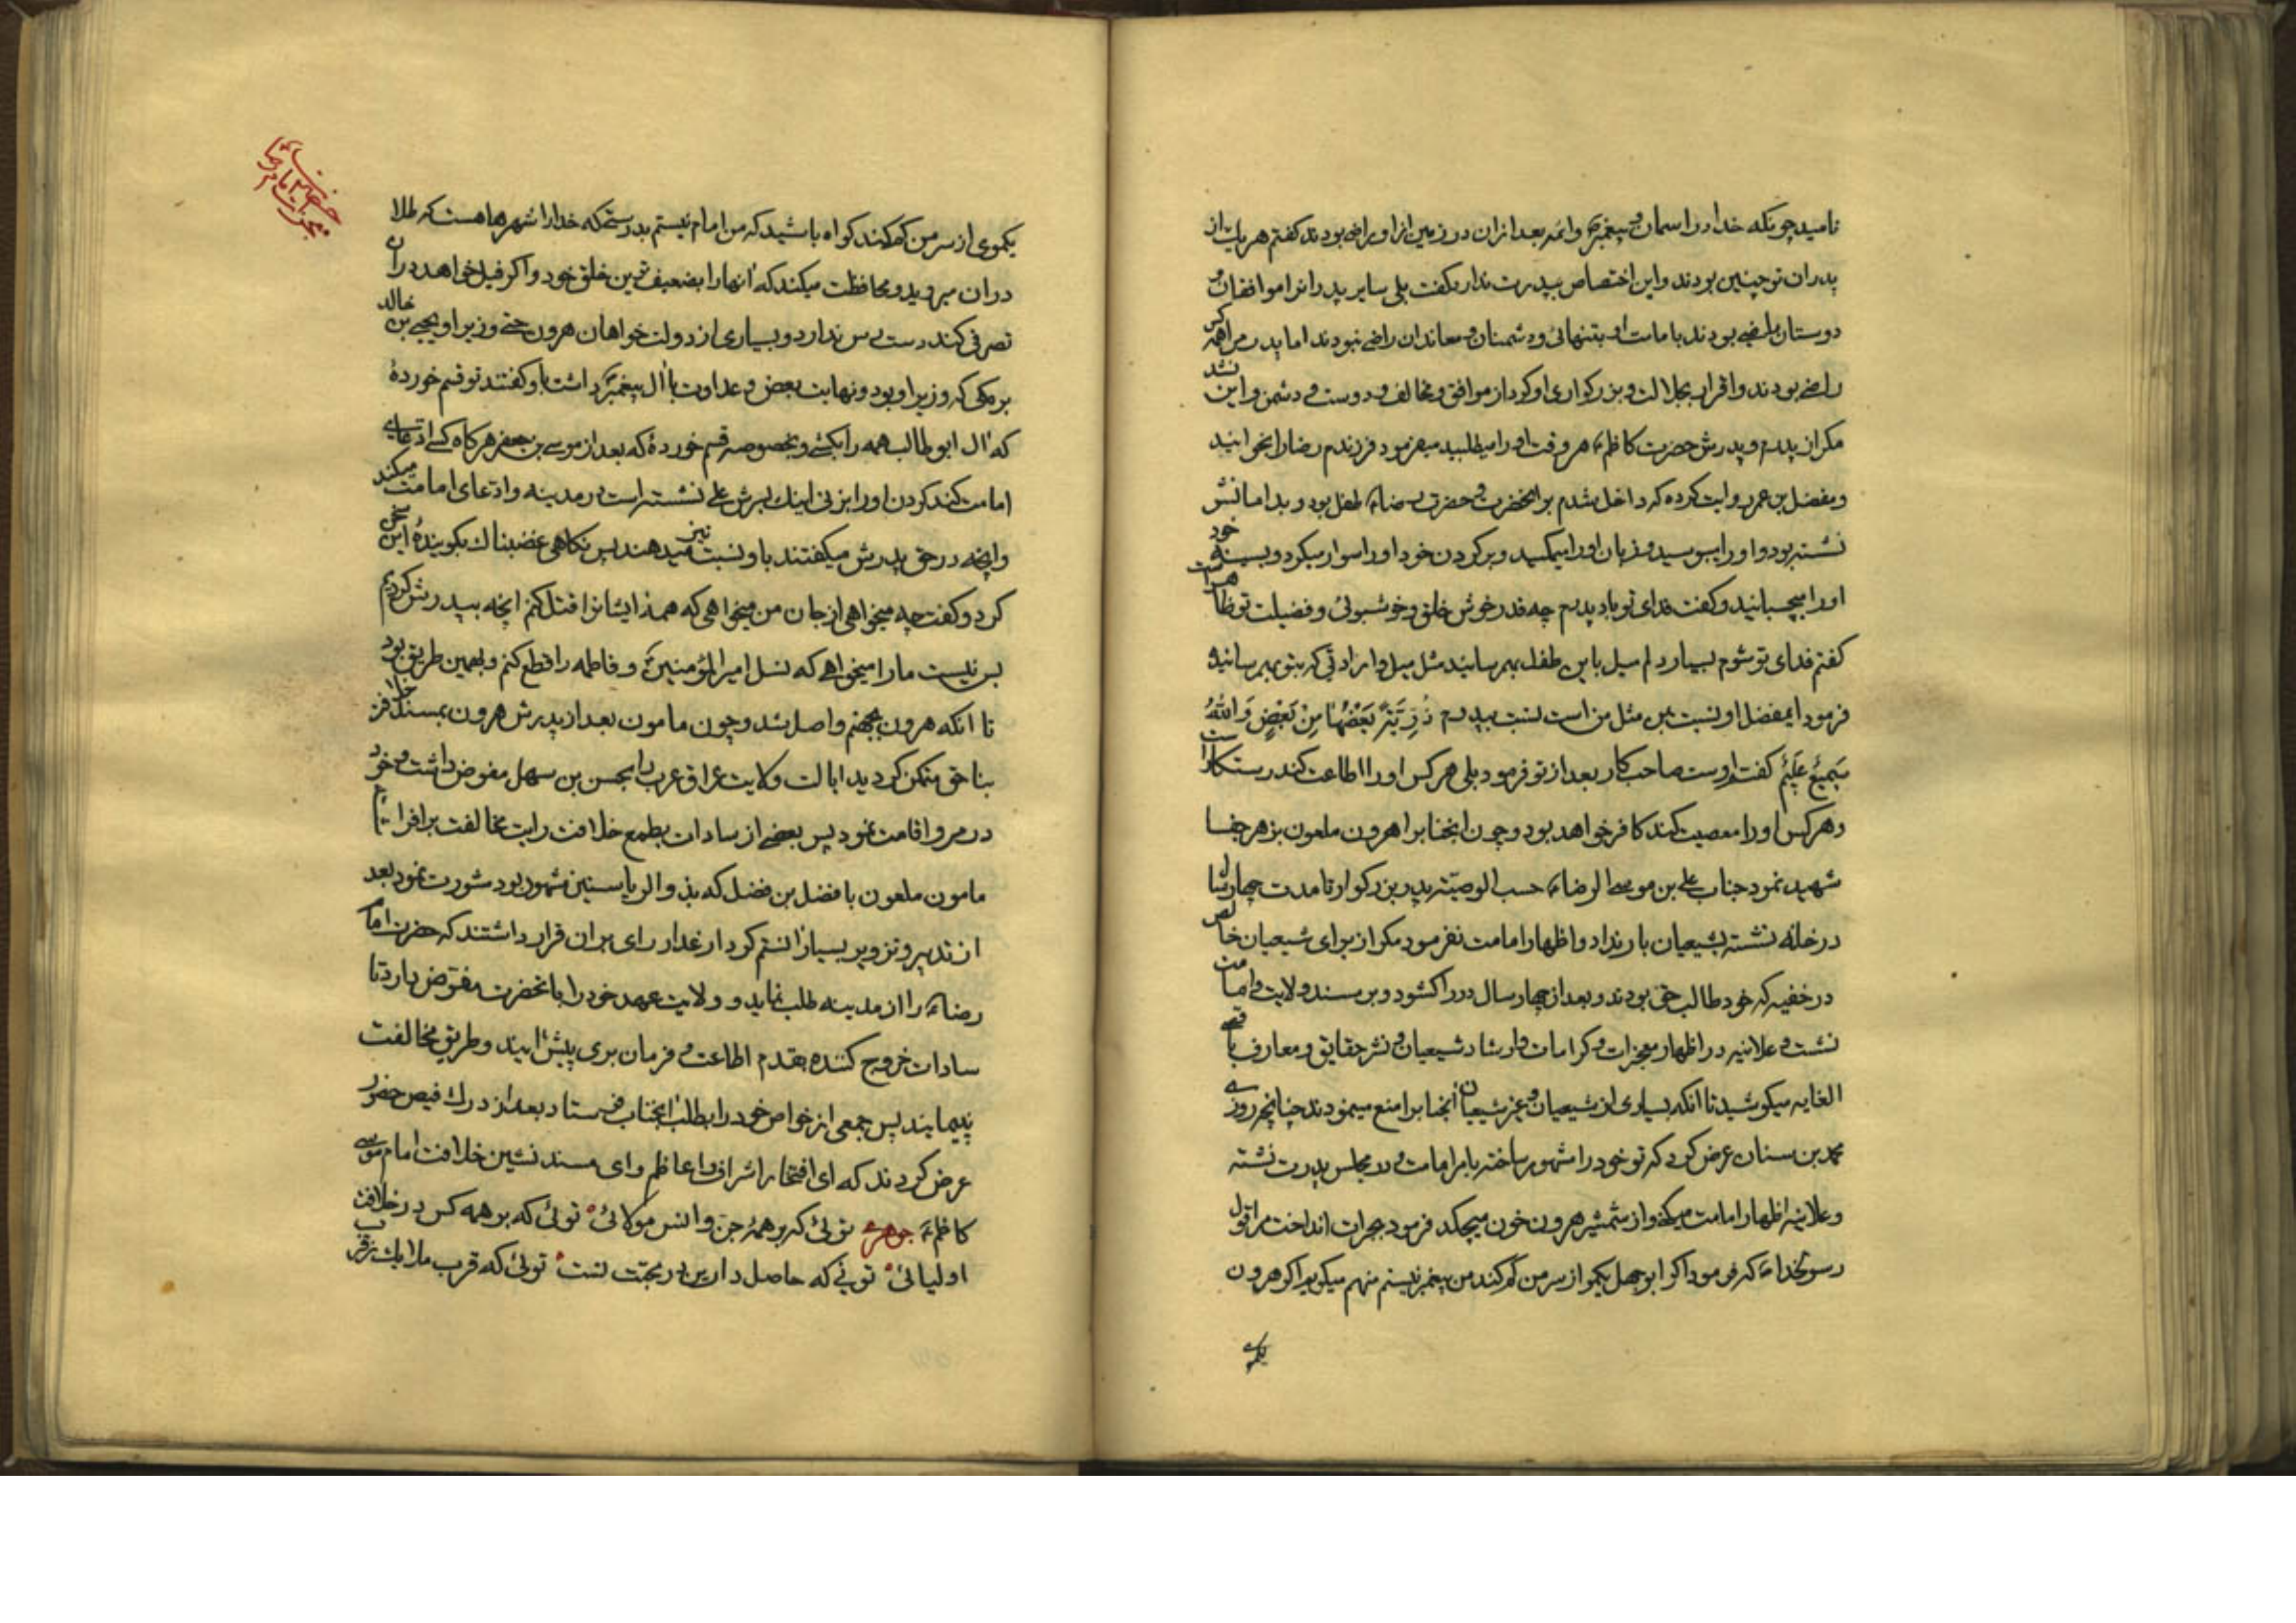 نامید چونکه خدا در اسمان و پیغمبرص و ائمه بعد از ان در زمین از او راضی بودند کفتم هر یك از
پدران تو چنین بودند و این اختصاص بپدرت ندارد کفت بلی سایر پدرانرا موافقان و
دوستان راضی بودند بامامت او بتنهائی و دشمنان و معاندان راضی نبودند اما پدرم را همه کس
راضی بودند و اقرار بجلالت و بزرکواری او کرد از موافق و مخالف و دوست و دشمن و این نشد
مکر از پدرم و پدرش حضرت کاظمع هر وقت او را میطلبید میفرمود فرزندم رضا را بخوانید
و مفضل بن عمر روایت کرده که داخل شدم بر انحضرت و حضرت رضاع طفل بود و بدامانش
نشسته بود و او را میبوسید و زبان او را میمکید و بر کردن خود او را سوار میکرد و بسینه خود
او را میچسبانید و کفت فدای تو باد پدرم چه قدر خوش خلق و خوشبوئی و فضیلت تو ظاهر است
کفتم فدای تو شوم بسیار دلم میل باین طفل بهم رسانید مثل میل و ارادتی که بتو بهم رسانیده
فرمود ایمفضل او نسبت بمن مثل من است نسبت بپدرم ذُرِّیَّةً بَعْضُهَا مِنْ بَعْضٍ وَ اللّٰهُ
سَمِیعٌ عَلِیمٌ کفتم اوست صاحب کار بعد از تو فرمود بلی هر کس او را اطاعت کند رستکار است
و هر کس او را معصیت کند کافر خواهد بود و چون انجناب را هرون ملعون بزهر جفا
شهید نمود جناب علی بن موسی الرضاع حسب الوصیّه پدر بزرکوار تا مدت چهار سال
در خانه نشسته بشیعیان بار نداد و اظهار امامت نفرمود مکر از برای شیعیان خالص
در خفیه که خود طالب حق بودند و بعد از چهار سال در را کشود و بر مسند ولایت و امامت
نشست و علانیه در اظهار معجزات و کرامات و ارشاد شیعیان و نشر حقایق و معارف باقصی
الغایه میکوشید تا انکه بسیاری از شیعیان و غیر شیعیان انجناب را منع مینمودند چنانچه روزی
محمد بن سنان عرض کرد که تو خود را مشهور ساختهٔ بامر امامت و در مجلس پدرت نشسته
و علانیه اظهار امامت میکنی و از شمشیر هرون خون میچکد فرمود بجرات انداخت مرا قول
رسولخداص که فرمود اکر ابو جهل یکمو از سر من کم کند من پیغمبر نیستم منهم میکویم اکر هرون
یکموی
یکموی از سر من کم کند کواه باشید که من امام نیستم بدرستی که خدا را شهرها هست که طلا
در ان میروید و محافظت میکند که انها را بضعیف ترین خلق خود و اکر فیل خواهد در ان
تصرفی کند دست رس ندارد و بسیاری از دولت خواهان هرون حتی وزیر او یحیی بن خالد
برمکی که وزیر او بود و نهایت بغض و عداوت با ال پیغمبرص داشت باو کفتند تو قسم خوردهٔ
که ال ابو طالب همه را بکشی و بخصوصه قسم خوردهٔ که بعد از موسی بن جعفر هر کاه کسی ادّعای
امامت کند کردن او را بزنی اینك پسرش علی نشسته است در مدینه و ادّعای امامت میکند
و انچه در حق پدرش میکفتند باو نسبت نیز میدهند پس نکاهی غضبناك بکویندهٔ این سخن
کرد و کفت چه میخواهی از جان من میخواهی که همه ایشانرا قتل کنم انچه بپدرش کردیم
بس نیست ما را میخواهی که نسل امیر المؤمنینع و فاطمه را قطع کنم و بهمین طریق بود
تا انکه هرون بجهنم واصل شد و چون مامون بعد از پدرش هرون بمسند خلافت
بناحق متمکن کردید ایالت ولایت عراق عرب را بحسن بن سهل مفوض داشت و خود
در مرو اقامت نمود پس بعضی از سادات بطمع خلافت رایت مخالفت برافراشتند
مامون ملعون با فضل بن فضل که بذو الریاستین مشهور بود مشورت نمود بعد
از تدبیر و تزویر بسیار انستم کردار غدار رای بران قرار داشتند که حضرت امام
رضاع را از مدینه طلب نماید و ولایت عهد خود را بانحضرت مفوّض دارد تا
سادات خروج کننده بقدم اطاعت و فرمان بری پیش ایند و طریق مخالفت
نپیمایند پس جمعی از خواص خود را بطلب انجناب فرستاد بعد از درك فیض حضور
عرض کردند که ای افتخار اشراف و اعاظم و ای مسند نشین خلافت امام موسی
کاظمع جوهری توئی که بر همهٔ جن و انس مولائی توئی که بر همه کس در خلافت
اولیائی توئی که حاصل دارین در محبّت تست توئی که قرب ملایك